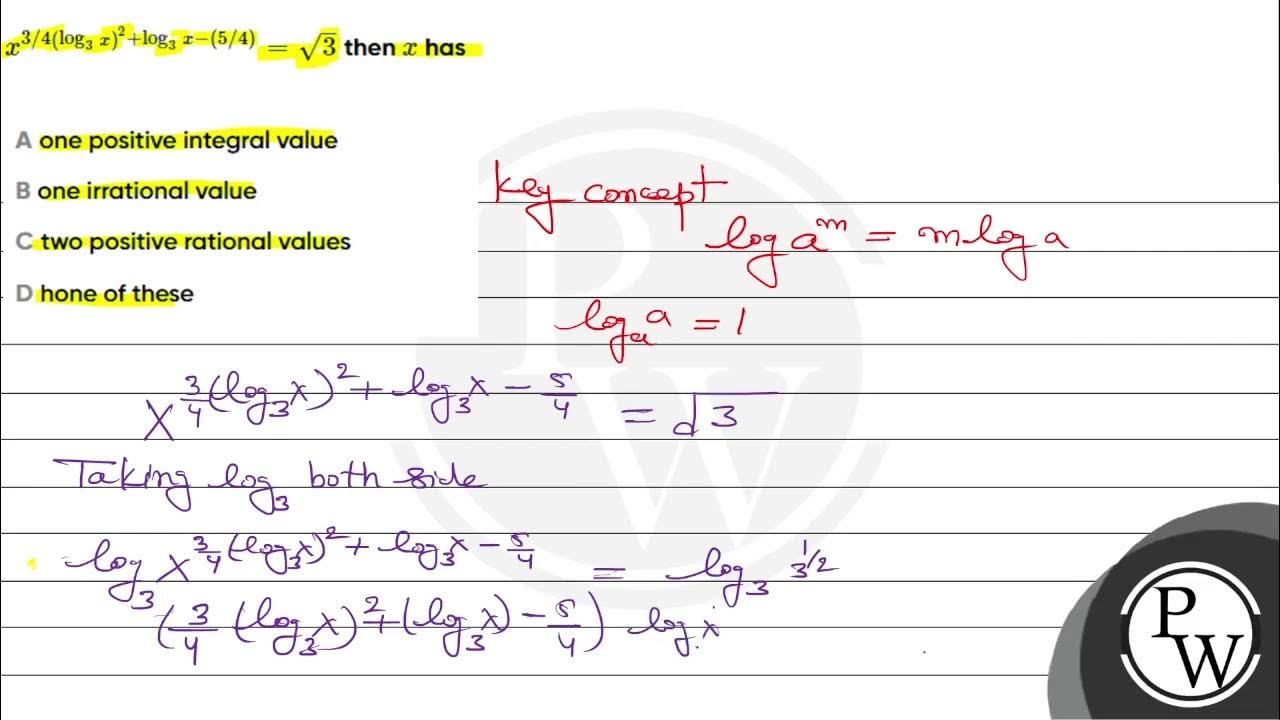 x^{3/4(log₃ x)²+log₃ x−(5/4)} = √3 then x has
A one positive integral value
B one irrational value
C two positive rational values
D hone of these
Key concept
log a^m = m log a
logₐ a = 1
x^{3/4 (log₃ x)² + log₃ x − 5/4} = √3
Taking log₃ both side
log₃ x^{3/4 (log₃ x)² + log₃ x − 5/4} = log₃ 3^{1/2}
(3/4 (log₃ x)² + (log₃ x) − 5/4) log x
P
W